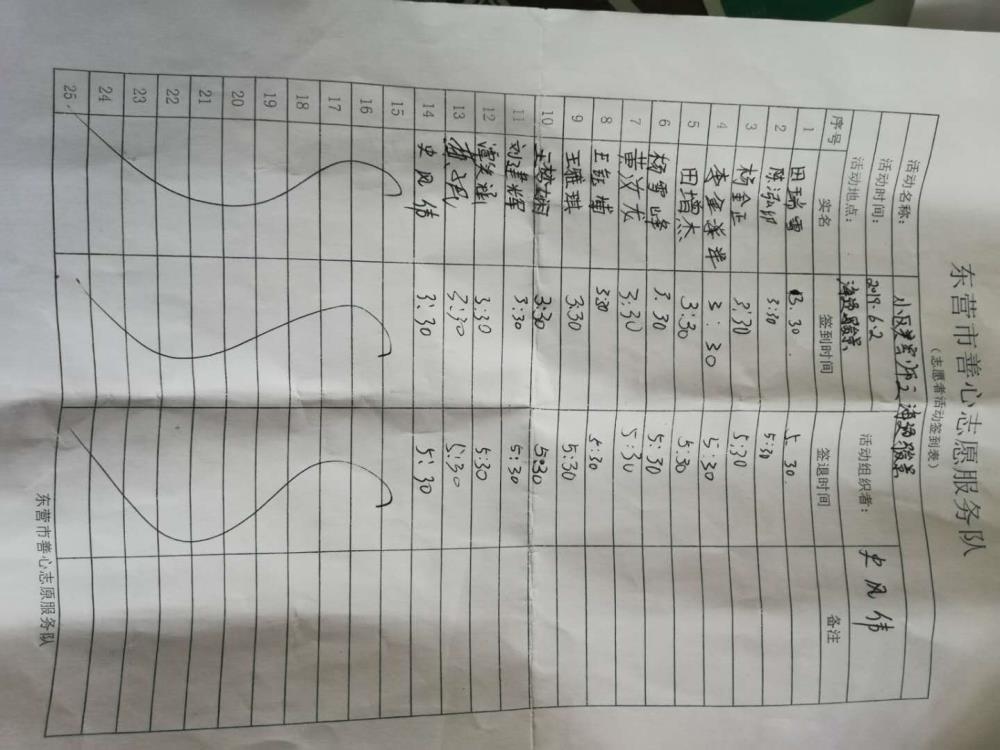 东营市善心志愿服务队
（志愿者活动签到表）
活动名称： 小区 海边
活动时间： 2019.6.2 活动组织者： 史风伟
活动地点： 海边
序号 实名 签到时间 签退时间 备注
1 田瑞雪 3.30 5.30
2 陈泓 3:30 5:30
3 杨金正 3:30 5:30
4 李金 3:30 5:30
5 田增杰 3:30 5:30
6 杨雪峰 3.30 5:30
7 黄汝龙 3:30 5:30
8 王 3:30 5:30
9 王雅琪 3.30 5:30
10 3:30 5:30
11 刘建辉 3:30 5:30
12 3:30 5:30
13 3:30 5:30
14 史风伟 3:30 5:30
15
16
17
18
19
20
21
22
23
24
25
东营市善心志原服务队